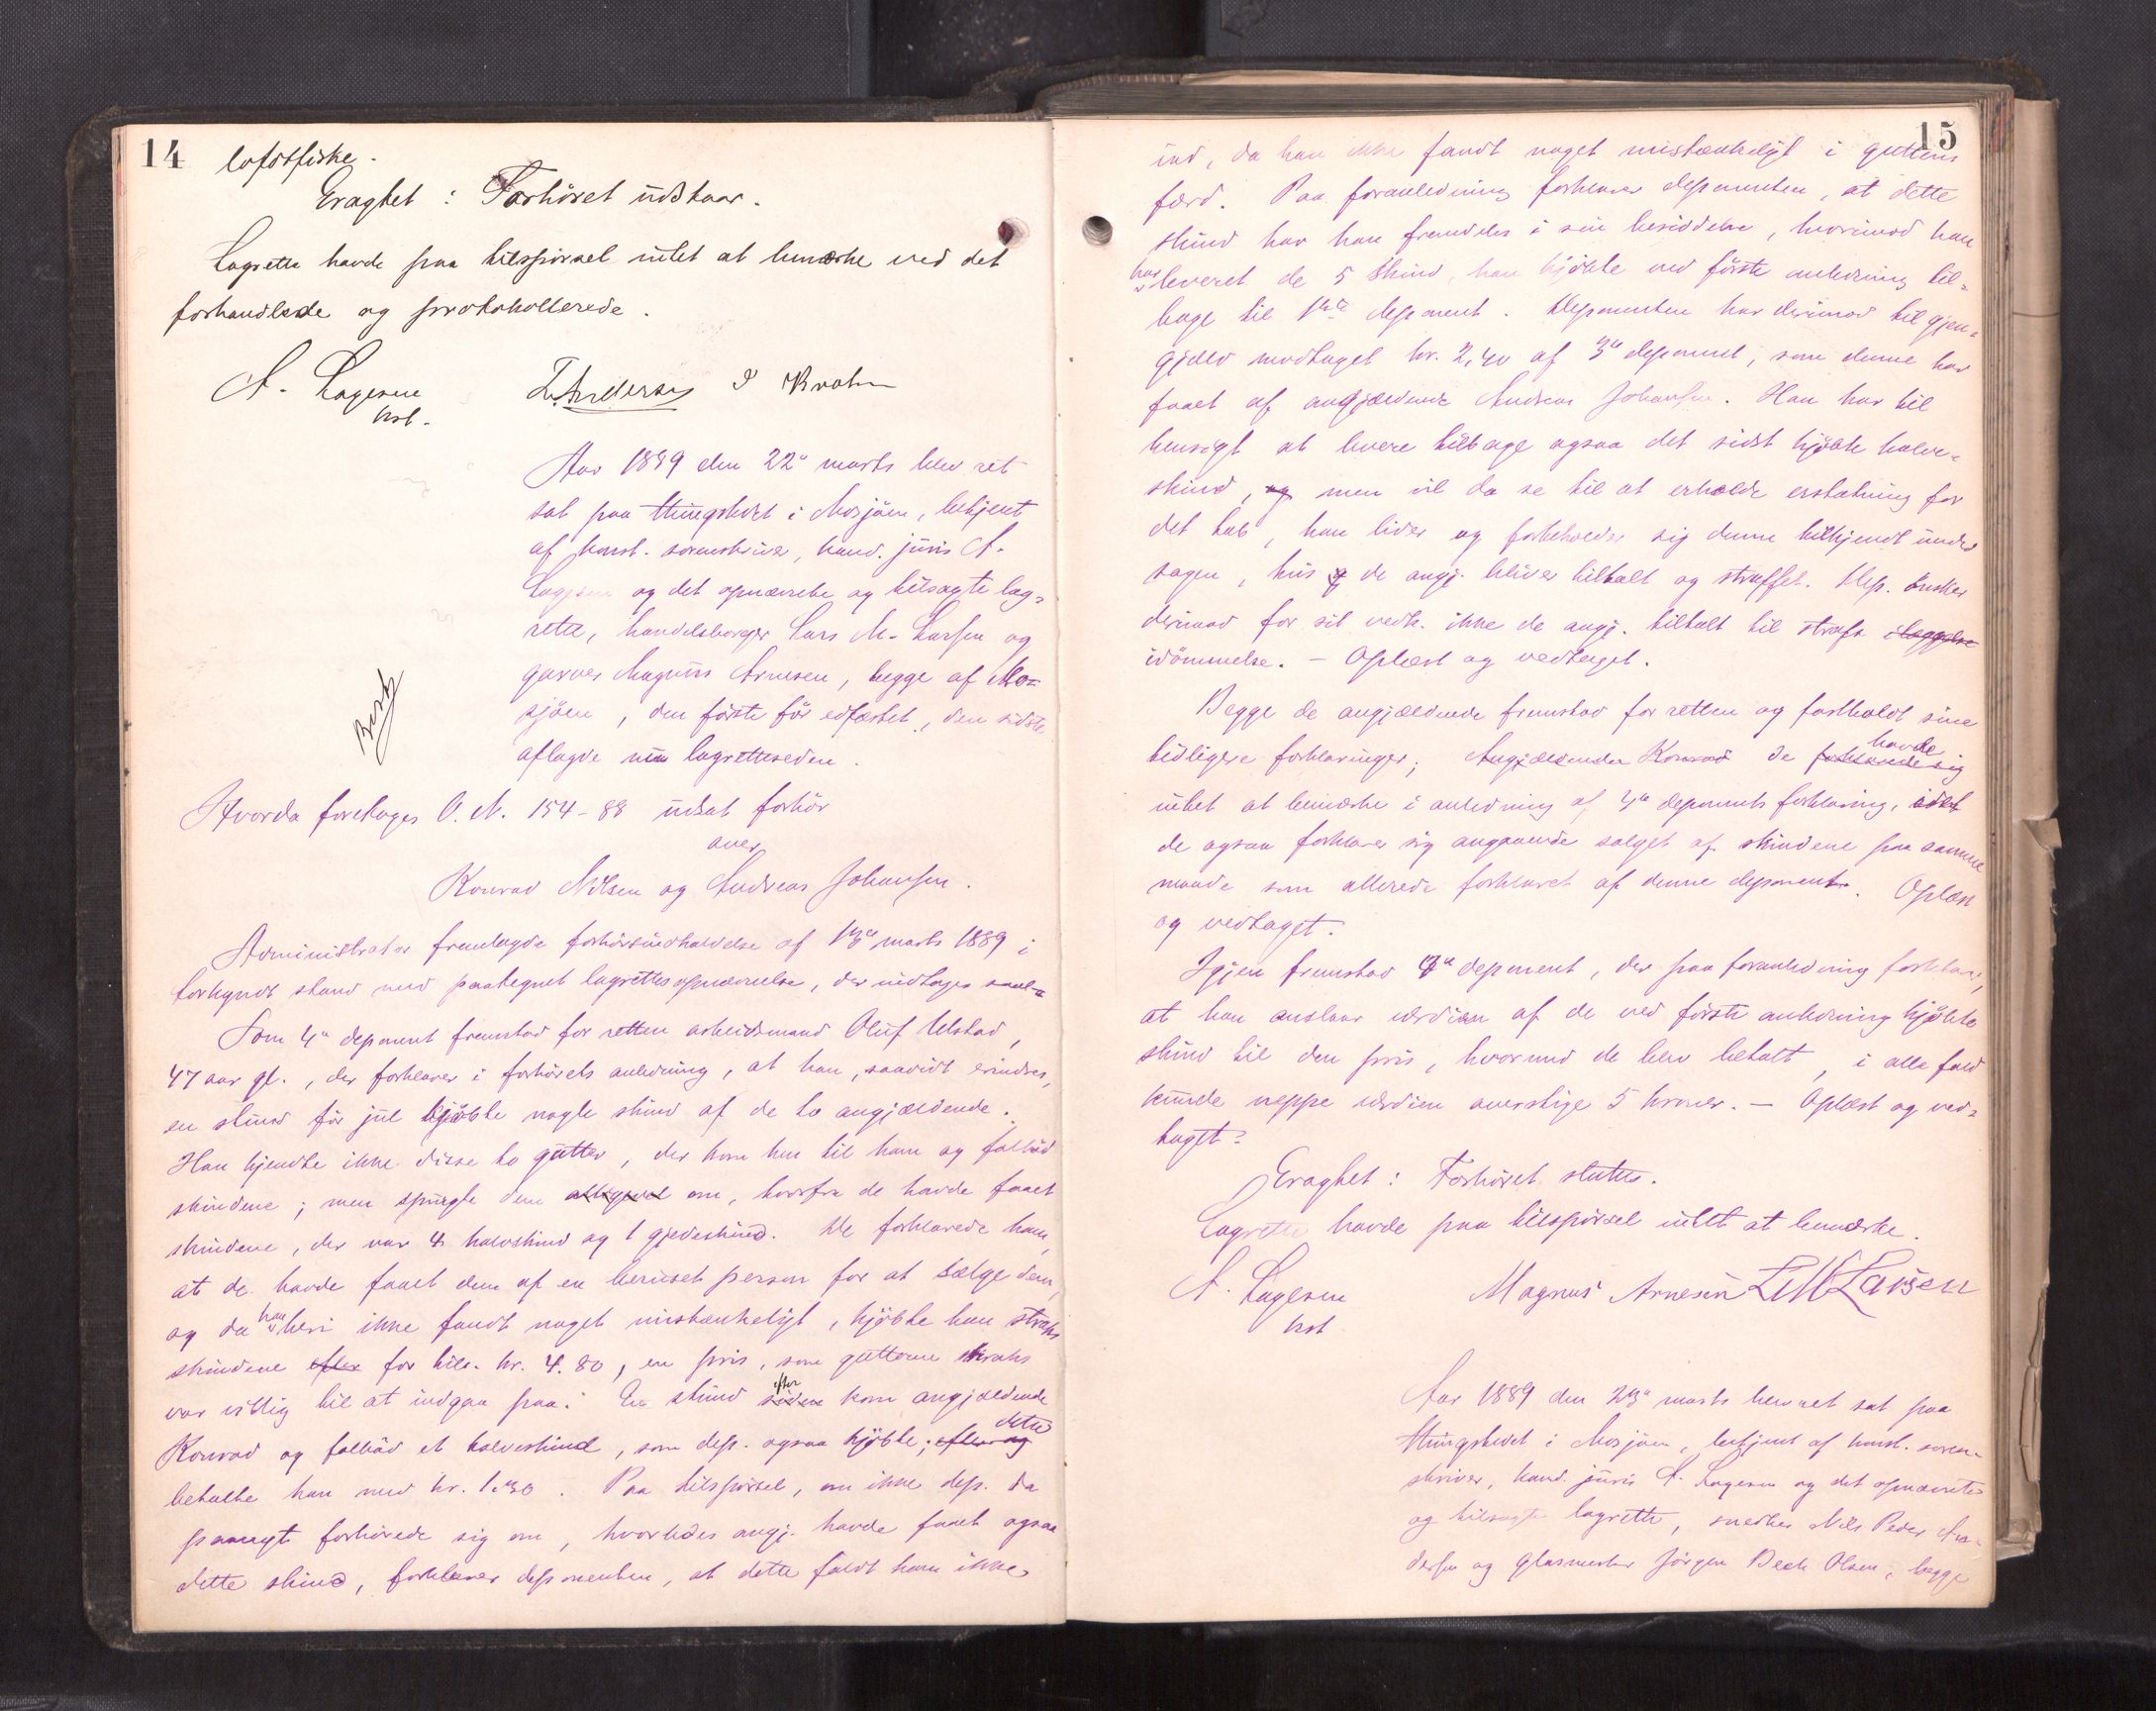 14
lofotfiske.
Eragtet: Forhöret udstaar.
Lagrette havde paa tilspörsel intet at bemærke ved det
forhandlede og protokollerede.
A. Lagesen
kst.
Z. Andersen J Krohn
Aar 1889 den 22de marts blev ret
sat paa thingstedet i Mosjöen, betjent
af konst. sorenskriver, kand. juris A.
Lagesen og det opnævnte og tilsagte lag-
rette, handelsborger Lars M. Larsen og
garver Magnus Arnesen, begge af Mo-
sjöen, den förste för edfæstet, den sidste
aflagde nu lagretteseden.
Besk
Hvorda foretoges O. N. 154-88 udsat forhör
over
Konrad Nilsen og Andreas Johansen.
Administrator fremlagde forhörsindkaldelse af 13de marts 1889 i
forkyndt stand med paategnet lagrettesopnævnelse, der indtages saal=
Som 4de deponent fremstod for retten arbeidsmand Oluf Ulstad,
47 aar gl., der forklarer i forhörets anledning, at han, saavidt erindres,
en stund för jul kjöbte nogle skind af de to angjældende.
Han kjendte ikke disse to gutter, der kom hen til ham og falböd
skindene; men spurgte dem alligevel om, hvorfra de havde faaet
skindene, der var 4 kalvskind og 1 gjedeskind. De forklarede ham,
at de havde faaet dem af en beruset person for at sælge dem,
og da han heri ikke fandt noget mistænkeligt, kjöbte han straks
skindene efter for tils. kr. 4.80, en pris, som gutterne straks
var villig til at indgaa paa. En stund siden efter kom angjældende
Konrad og falböd et kalveskind, som dep. ogsaa kjöbte; efter og dette
betalte han med kr. 1.30. Paa tilspörsel, om ikke dep. da
paanyt forhörede sig om, hvorledes angj. havde faaet ogsaa
dette skind, forklarer deponenten, at dette faldt ham ikke
15
ind, da han ikke fandt noget mistænkeligt i guttens
færd. Paa foranledning forklarer deponenten, at dette
skind har han fremdeles i sin besiddelse, hvorimod han
har leveret de 5 skind, han kjöbte ved förste anledning til-
bage til 1ste deponent. Deponenten har derimod til gjen-
gjæld modtaget kr. 2,40 af 3de deponent, som denne har
faaet af angjældende Andreas Johansen. Han har til
hensigt at levere tilbage ogsaa det sidst kjöbte kalve-
skind, og men vil da se til at erholde erstatning for
det tab, han lider og forbeholder sig denne tilkjendt under
sagen, hvis de angj. bliver tiltalt og straffet. Dep. önsker
derimod for sit vedk. ikke de angj. tiltalt til straffs ilæggelse
idömmelse. – Oplæst og vedtaget.
Begge de angjældende fremstod for retten og fastholdt sine
tidligere forklaringer; Angjældende Konrad de forklarede sig havde
intet at bemærke i anledning af 4de deponents forklaring, idet
de ogsaa forklarer sig angaaende salget af skindene paa samme
maade som allerede forklaret af denne deponent. Oplæst
og vedtaget.
Igjen fremstod 4de deponent, der paa foranledning forklarer,
at han anslaar værdien af de ved förste anledning kjöbte
skind til den pris, hvormed de blev betalt, i alle fald
kunde neppe værdien overstige 5 kroner. – Oplæst og ved-
taget.
Eragtet: Forhöret sluttes.
Lagrette havde paa tilspörsel intet at bemærke.
A. Lagesen
kst.
Magnus Arnesen L M Larsen
Aar 1889 den 23de marts blev ret sat paa
thingstedet i Mosjöen, betjent af konst. soren-
skriver, kand. juris A. Lagesen og det opnævnte
og tilsagte lagrette, snedker Nils Peder An-
dersen og glasmester Jörgen Beck Olsen, begge